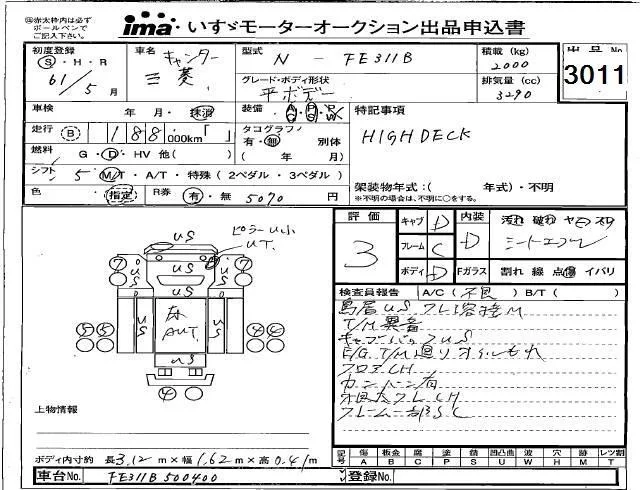 ㊟赤太枠内は必ず
ボールペンで
ご記入下さい。
ima いすゞモーターオークション出品申込書
初度登録 Ⓢ・H・R
61/5 月
車名 キャンター
三菱
型式 N - FE311B
積載 (kg) 2000
出品No 3011
グレード・ボディ形状
平ボデー
排気量 (cc) 3290
車検 年 月・抹消
装備
特記事項
走行 Ⓑ 188 000km「 」
タコグラフ 有・無 別体
HIGH DECK
燃料 G・D・HV 他( )
( 年 月)
シフト 5 M/T・A/T・特殊 (2ペダル・3ペダル)
架装物年式:( 年式)・不明
※不明の場合は、不明に○をする。
色 (指定) R券 有・無 5070 円
ピラーU小
UT.
US
7 7 US US 7 7
US US
AUT.
5 5 4 4
US
4
評価 3
キャブ D 内装 D
フレーム C シートエフレ
ボディ D Fガラス 割れ 線 点 傷 イバリ
検査員報告 A/C (不良) B/T ( )
鳥居US フレ溶接M
T/M異音
キャブバックUS
E/G T/M廻りオイルもれ
フロアCH
カンバン有
フレームー部SC
上物情報
ボディ内寸約 長 3.12 m × 幅 1.62 m × 高 0.41 m
記号 傷 板金 腐 塗 錆 凹凸曲 波 穴 跡 レツ割
A B C P S U W H M T
車台No. FE311B 500400 登録No.